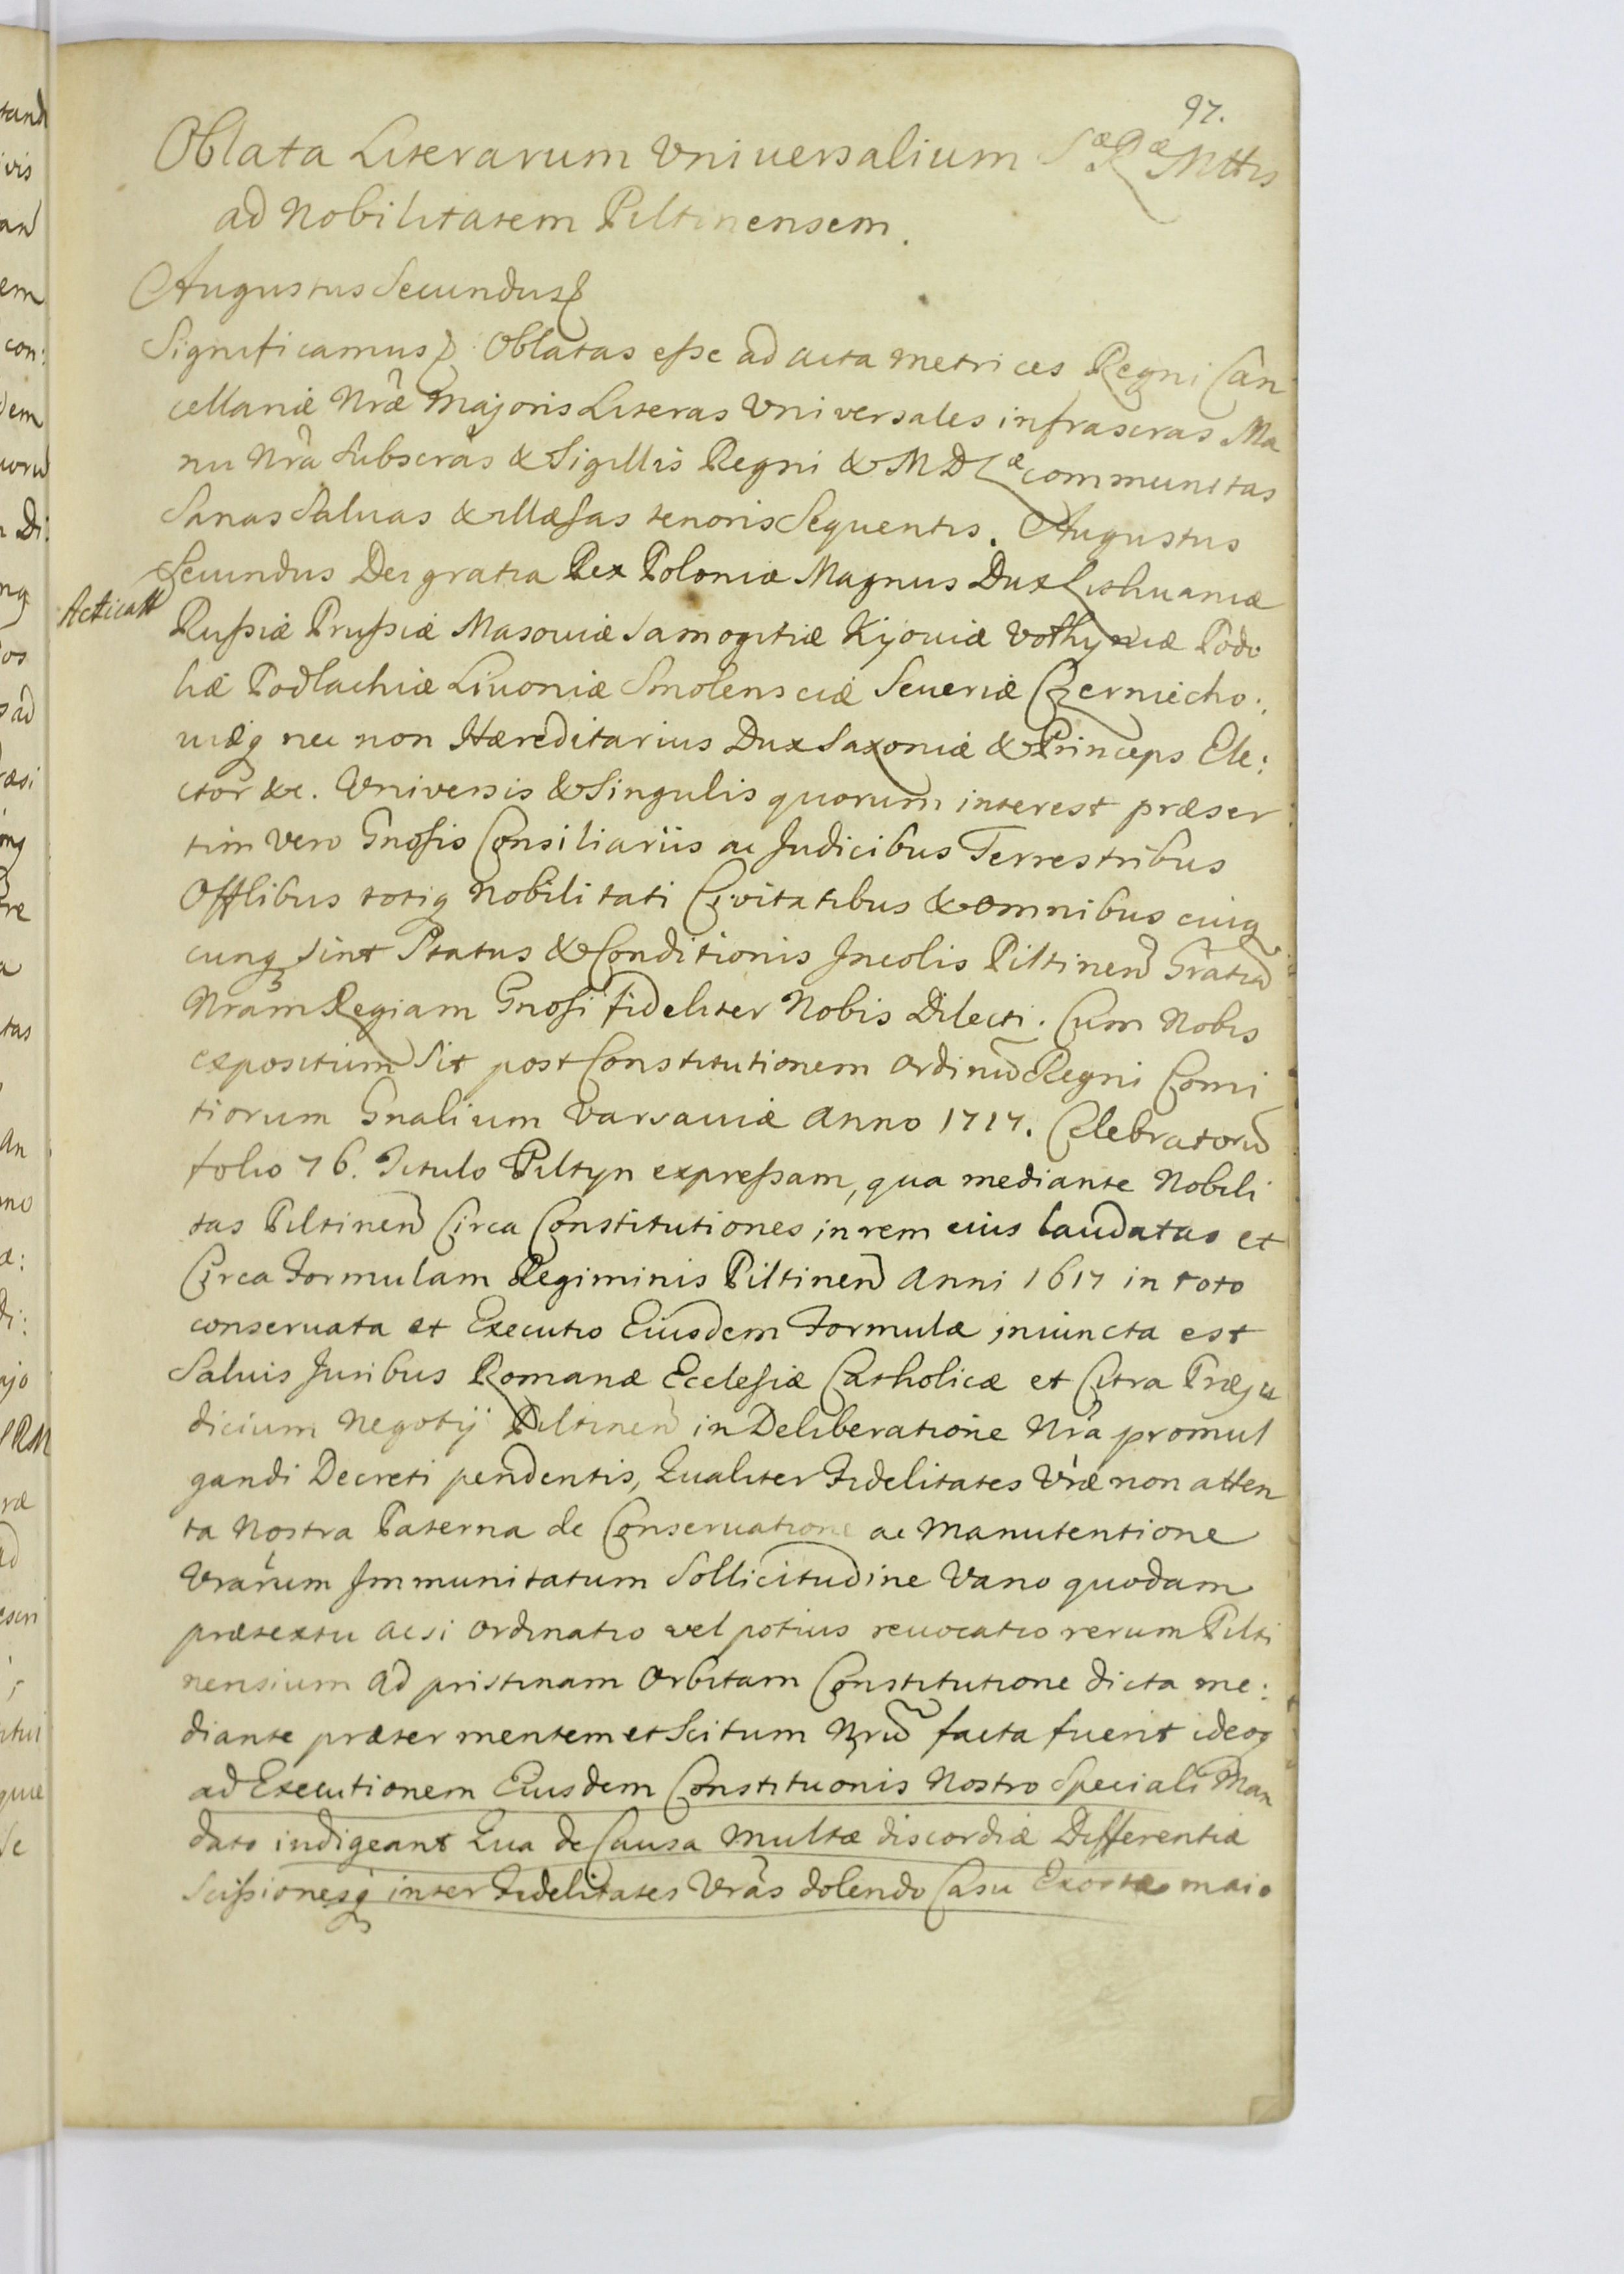 97.
Oblata Literarum Vniuersalium Sæ Ræ Mttis
ad Nobilitatem Piltinensem.
Augustus Secundus
Significamus Oblatas esse ad acta metrices Regni Can
cellariæ Nræ Majoris Literas Vniversales infrascras Ma
nu Nrâ Subscras & Sigillis Regni & M D Læ communitas
Sanas Saluas & illæsas tenoris Sequentis. Augustus
Secundus Dei gratia Rex Poloniæ Magnus Dux Lithuaniæ
Acticatt
Russiæ Prussiæ Masouiæ Samogitiæ Kijouiæ Volhyniæ Podo
liæ Podlachiæ Liuoniæ Smolensciæ Seueriæ Czerniecho:
uiæq nec non Hæreditarius Dux Saxoniæ & Princeps Ele:
ctor &c. Vniversis & Singulis quorum interest præser
tim vero Gnosis Consiliariis ac Judicibus Terrestribus
Offlibus totiq Nobilitati Civitatibus & omnibus cuiq
cunq sint Status & Conditionis Incolis Piltinen Gratia
Nram Regiam Gnosi fideliter Nobis Dilecti. Cum Nobis
expositum sit post Constitutionem Ordinu Regni Comi
tiorum Gnalium Varsauiæ Anno 1717. Celebratoru
folio 76. Titulo Piltyn expressam, qua mediante Nobili
tas Piltinen Circa Constitutiones in rem eius laudatas et
Circa Formulam Regiminis Piltinen Anni 1617 in toto
conseruata et Executio Eiusdem Formulæ iniuncta est
Saluis Juribus Romanæ Ecclesiæ Catholicæ et Citra Præju
dicium Negotij Piltinen in Deliberatione Nra promul
gandi Decreti pendentis, Qualiter Fidelitates Vræ non atten
ta Nostra Paterna de Conseruatione ac Manutentione
Vrarum Immunitatum Sollicitudine Vano quodam
prætextu acsi Ordinatio vel potius reuocatio rerum Pilti
nensium ad pristinam Orbitam Constitutione dicta me:
diante præter mentem et Scitum Nru facta fuerit ideoq
ad Executionem Eiusdem Constituonis Nostro Speciali Man
dato indigeant Qua de Causa Multæ discordiæ Differentiæ
Scissionesq inter Fidelitates Vras dolendo Casu Exortæ maio